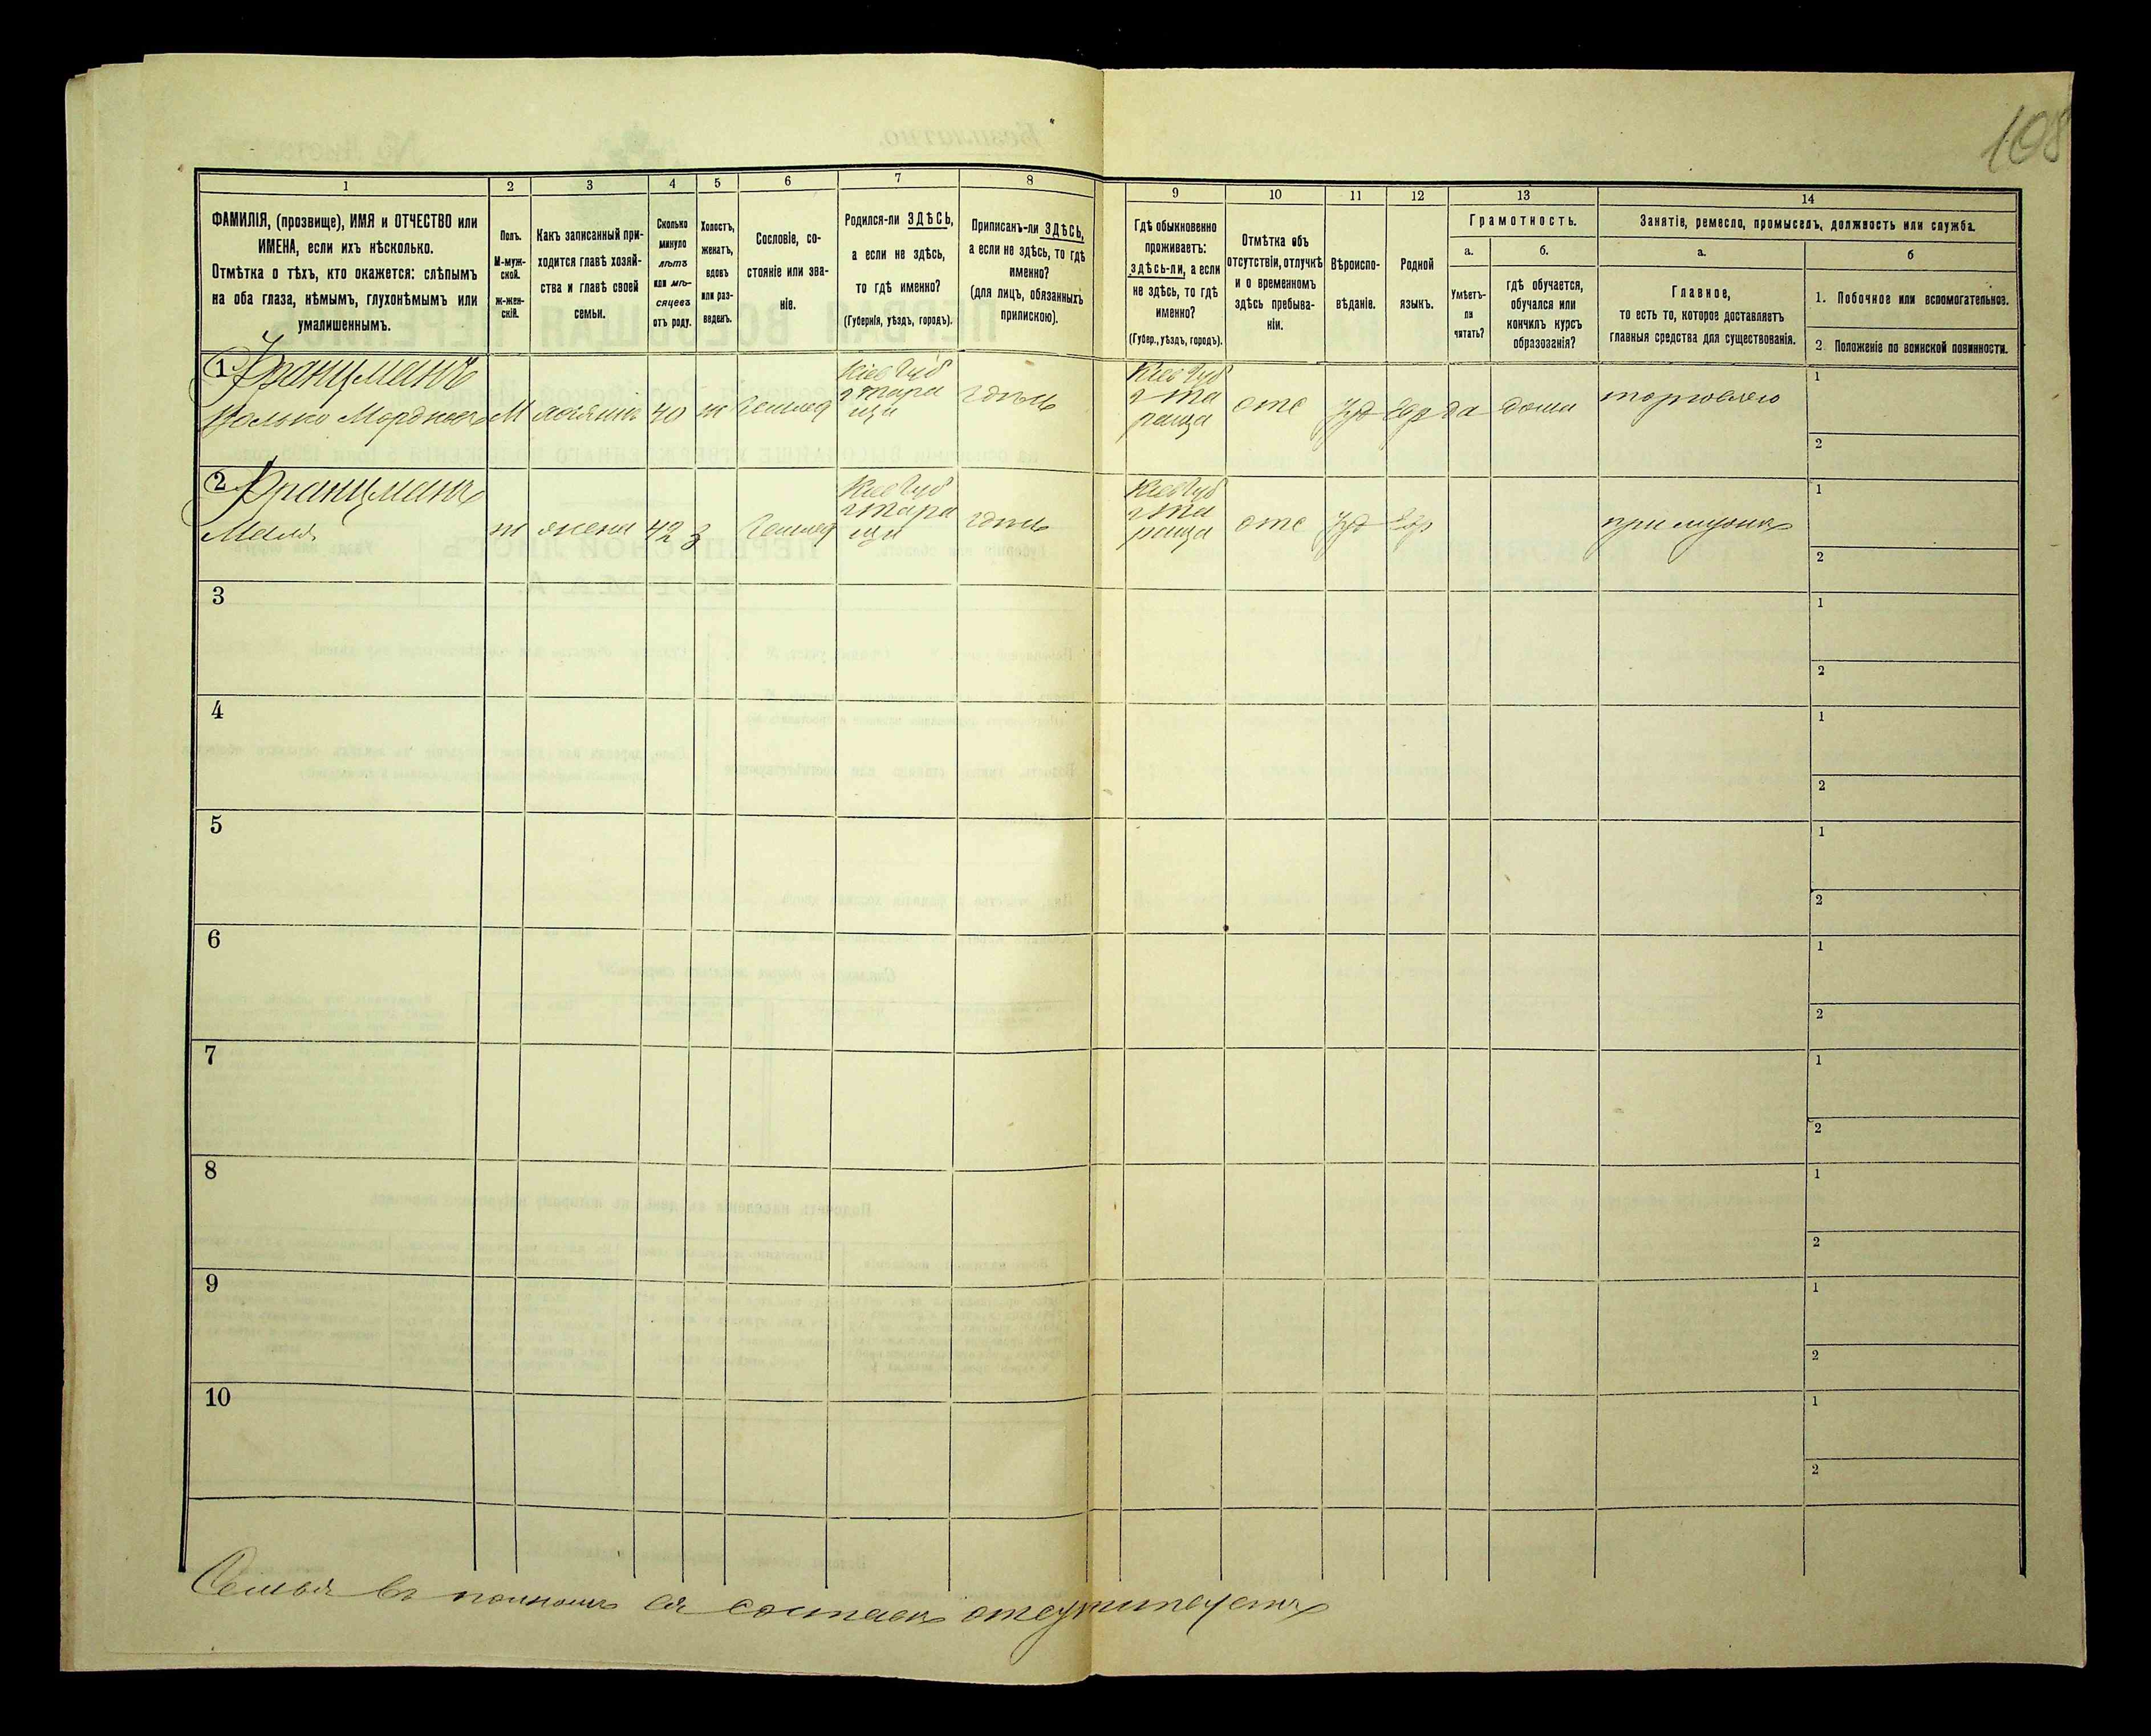 108
1
2
3
4
5
6
7
8
ФАМИЛІЯ, (прозвище), ИМЯ и ОТЧЕСТВО или
ИМЕНА, если ихъ нѣсколько.
Отмѣтка о тѣхъ, кто окажется: слѣпымъ
на оба глаза, нѣмымъ, глухонѣмымъ или
умалишеннымъ.
Полъ.
М-муж-
ской.
ж-жен-
скій.
Какъ записанный при-
ходится главѣ хозяй-
ства и главѣ своей
семьи.
Сколько
минуло
лѣтъ
или мѣ-
сяцевъ
отъ роду.
Холостъ,
женатъ,
вдовъ
или раз-
веденъ.
Сословіе, со-
стояніе или зва-
ніе.
Родился-ли ЗДѢСЬ,
а если не здѣсь,
то гдѣ именно?
(Губернія, уѣздъ, городъ).
Приписанъ-ли ЗДѢСЬ,
а если не здѣсь, то гдѣ
именно?
(для лицъ, обязанныхъ
припискою).
9
10
11
12
13
14
Гдѣ обыкновенно
проживаетъ:
здѣсь-ли, а если
не здѣсь, то гдѣ
именно?
(Губер., уѣздъ, городъ).
Отмѣтка объ
отсутствіи, отлучкѣ
и о временномъ
здѣсь пребыва-
ніи.
Вѣроиспо-
вѣданіе.
Родной
языкъ.
Грамотность.
а.
б.
Умѣетъ-
ли
читать?
гдѣ обучается,
обучался или
кончилъ курсъ
образозанія?
Занятіе, ремесло, промыселъ, должность или служба.
а.
б
Главное,
то есть то, которое доставляетъ
главныя средства для существованія.
1. Побочное или вспомогательное.
2. Положеніе по воинской повинности.
1 Францманъ
М хозяинъ 40 ж
Кіев Губ
г Тара
ща
Кіев Губ
г Та
раща
отс Іуд Евр да дома торговля
1
2
2 Францманъ
Маля ж жена 42 з
Кіев Губ
г Тара
ща
Кіев Губ
г Та
раща
отс Іуд Евр при мужѣ
1
2
3
1
2
4
1
2
5
1
2
6
1
2
7
1
2
8
1
2
9
1
2
10
1
2
Семья въ полномъ ея составѣ отсутствуетъ